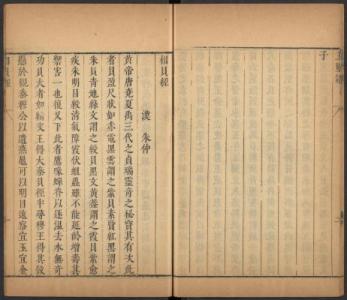 子
相貝經
漢 朱仲
黃帝唐堯夏禹三代之貞瑞靈奇之秘寶其有次此
者貝盈尺狀如赤電黑雲謂之紫貝素質紅黑謂之
朱貝青地綠文謂之綬貝黑文黃畫謂之霞貝紫愈
疾朱明目綬消氣障霞伏蛆蟲雖不能延齡增壽其
禦害一也復又下此者鷹喙蟬脊以逐溫去水無奇
功貝大者如輪文王得大秦貝徑半尋穆王得其殼
懸於觀秦穆公以遺燕鼂可以明目遠察宜玉宜金
相貝經